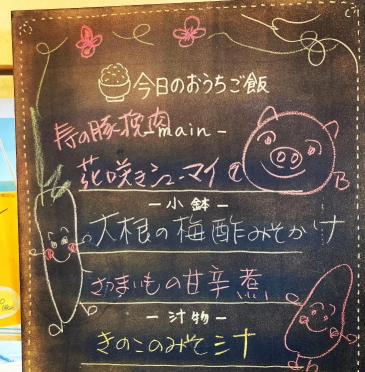 今日のおうちご飯
寿の豚挽肉main-
花咲きシューマイ
-小鉢-
大根の梅酢みそかけ
さつまいもの甘辛煮
-汁物-
きのこのみそ汁